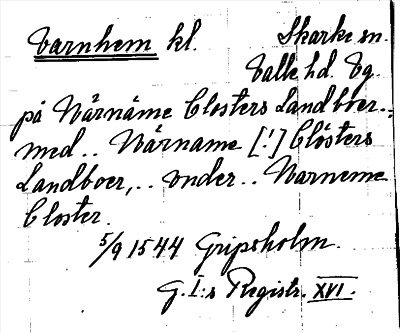 Varnhem kl. Skarke sn.
Valle hd. Vg.
på Wärnäme Closters Landboer..
med.. Wärname [!] Clösters
Landboer,.. vnder.. Warneme
Closter.
5/9 1544 Gripsholm.
G. I:s Registr. XVI.